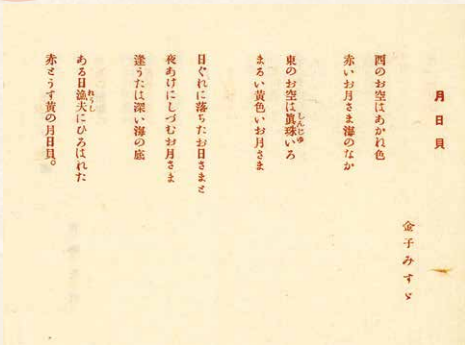 月日貝
金子みすゞ
西のお空はあかね色
赤いお月さま海のなか
東のお空は眞珠いろ
しんじゆ
まるい黄色いお月さま
日ぐれに落ちたお日さまと
夜あけにしづむお月さま
逢うたは深い海の底
ある日漁夫にひろはれた
れうし
赤とうす黄の月日貝。